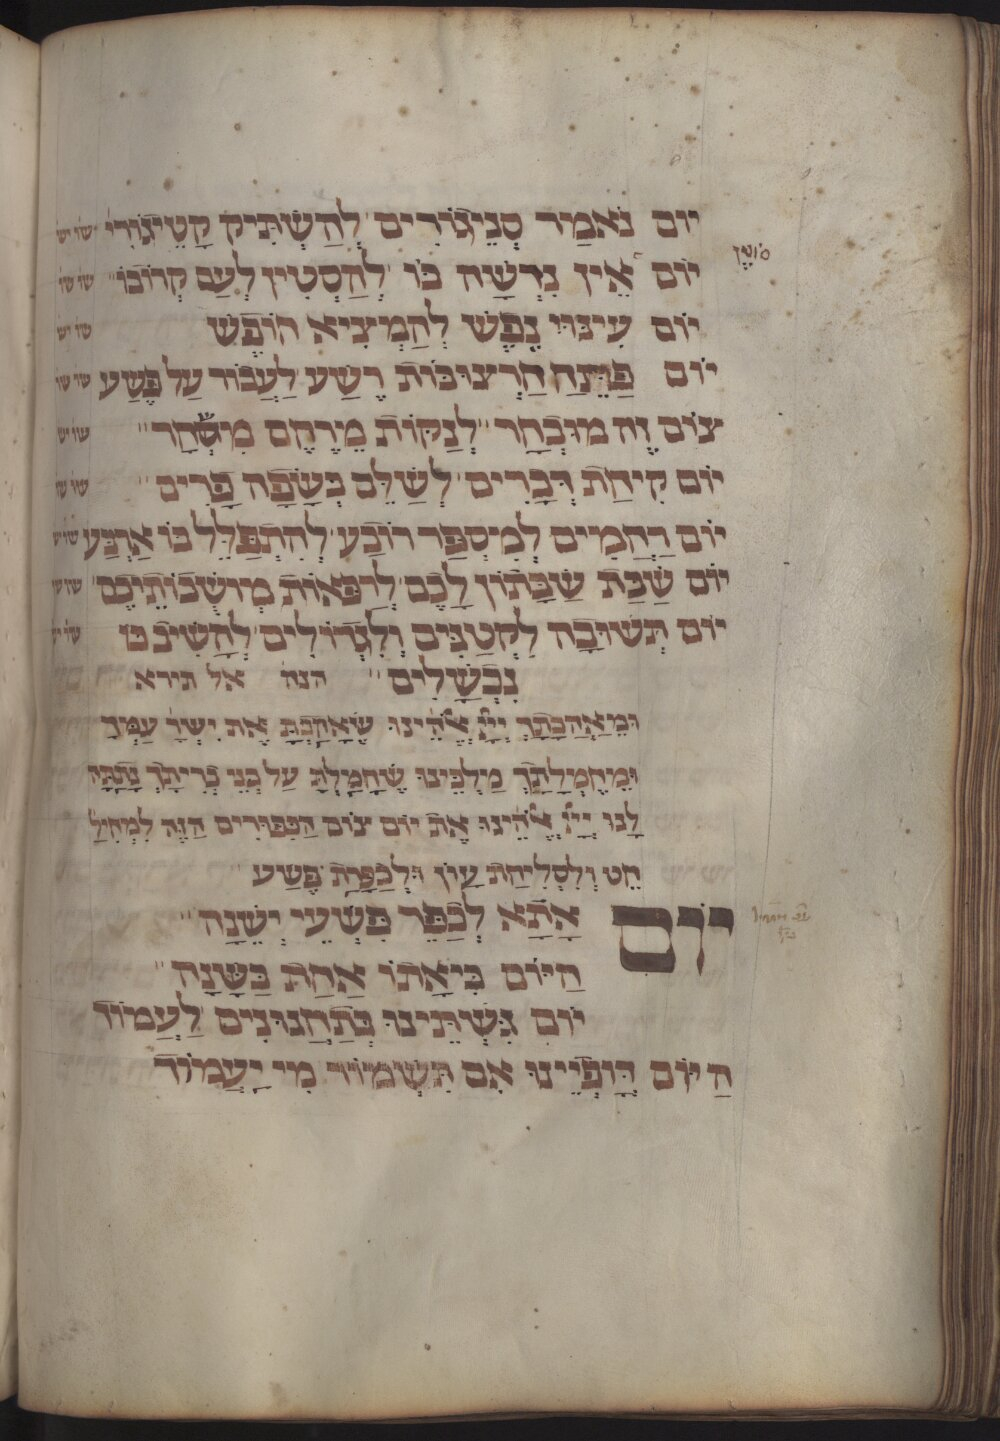 יום נֹאמַר סְנֵיגוֹרִים לְהַשְׂתִּיק קָטֵיגוֹרִי׳ שו׳ יש׳
סוֹעֵן
יוֹם אֵין נִרְשָׁה בּוֹ לְהַסְטִין לְעַם קְרוֹבוֹ שו׳ שו׳
יוֹם עִינּוּי נֶפֶשׁ לְהַמְצִיא הוֹפֶשׁ שו׳ יש׳
יוֹם פַּתֵּחַ חַרְצוּבּוֹת רֶשַׁע לַעֲבוֹר עַל פֶּשַׁע שו׳ שו׳
צוֹם זֶה מוּבְחָר לְנַקּוֹת מֵרֶחֶם מִשְׁחָר שו׳ יש׳
יוֹם קִיחַת דְּבָרִים לְשַׁלֵּם בְּשָׂפָה פָּרִים שו׳ שו׳
יוֹם רַחֲמִים לְמִסְפַּר רוֹבַע לְהִתְפַּלֵּל בּוֹ אַרְבַּע שו׳ יש
יוֹם שַׁבַּת שַׁבָּתוֹן לָכֶם לְרַפְּאוֹת מְשׁוּבוֹתֵיכֶם שו׳ שו׳
יוֹם תְּשׁוּבָה לִקְטַנִּים וְלִגְדוֹלִים לְהָשִׁיב בּוֹ שו׳ יש׳
נִכְשָׁלִים הנה אל תירא
וּמֵאַהֲבָתְךָ יְיָ אֱלֹהֵינוּ שֶׁאָהַבְתָּ אֶת יִשְׂרָ׳ עַמְּךָ
וּמֵחֶמְלָתְךָ מַלְכֵּינוּ שֶׁחָמַלְתָּ עַל בְּנֵי בְרִיתָךְ נָתַתָּה
לָנוּ יְיָ אֱלֹהֵינוּ אֶת יוֹם צוֹם הַכִּפּוּרִים הַזֶּה לִמְחִיל׳
חֵט וְלִסְלִיחַת עָוֹן וּלְכַפָּרַת פֶּשַׁע
יוֹם אָתָא לְכַפֵּר פִּשְׁעֵי יְשֵׁנָה
הַיּוֹם בִּיאָתוֹ אַחַת בַּשָּׁנָה
יוֹם גִּשְׁתֵּינוּ בְּתַחֲנוּנִים לַעֲמוֹד
הַיּוֹם דָּוְפְיֵינוּ אִם תִּשְׁמוֹר מִי יַעֲמוֹד